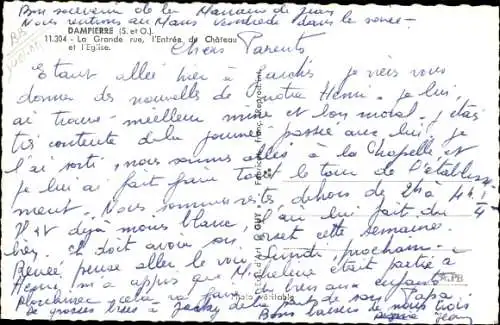 Bon souvenir de la Maman de Jean
Nous rentrons au Mans Vendredi dans la soirée
DAMPIERRE (S. et O.)
11.304 - La Grande rue, l'Entrée du Château
et l'Eglise.
Chers Parents
Etant allée hier à je viens vous
donner des nouvelles de notre Henri. je lui
ai trouvé meilleure mine et bon moral. j'étais
très contente de la journée passée avec lui, je
l'ai sorti, nous sommes allés à la Chapelle et
je lui ai fait faire tout le tour de l'établisse
ment. Nous sommes restés dehors de 2h à 4h 1/4
Il est déjà moins blanc, l'air lui fait du
bien. Il doit avoir son ce
Renée pense aller le voir Lundi prochain
Henri m'a appris que Micheline était partie à
cela va faire du bien aux enfants
De grosses bises à de la part de son Papa.
Bons baisers de nous trois
Jean
Photo véritable
GUY